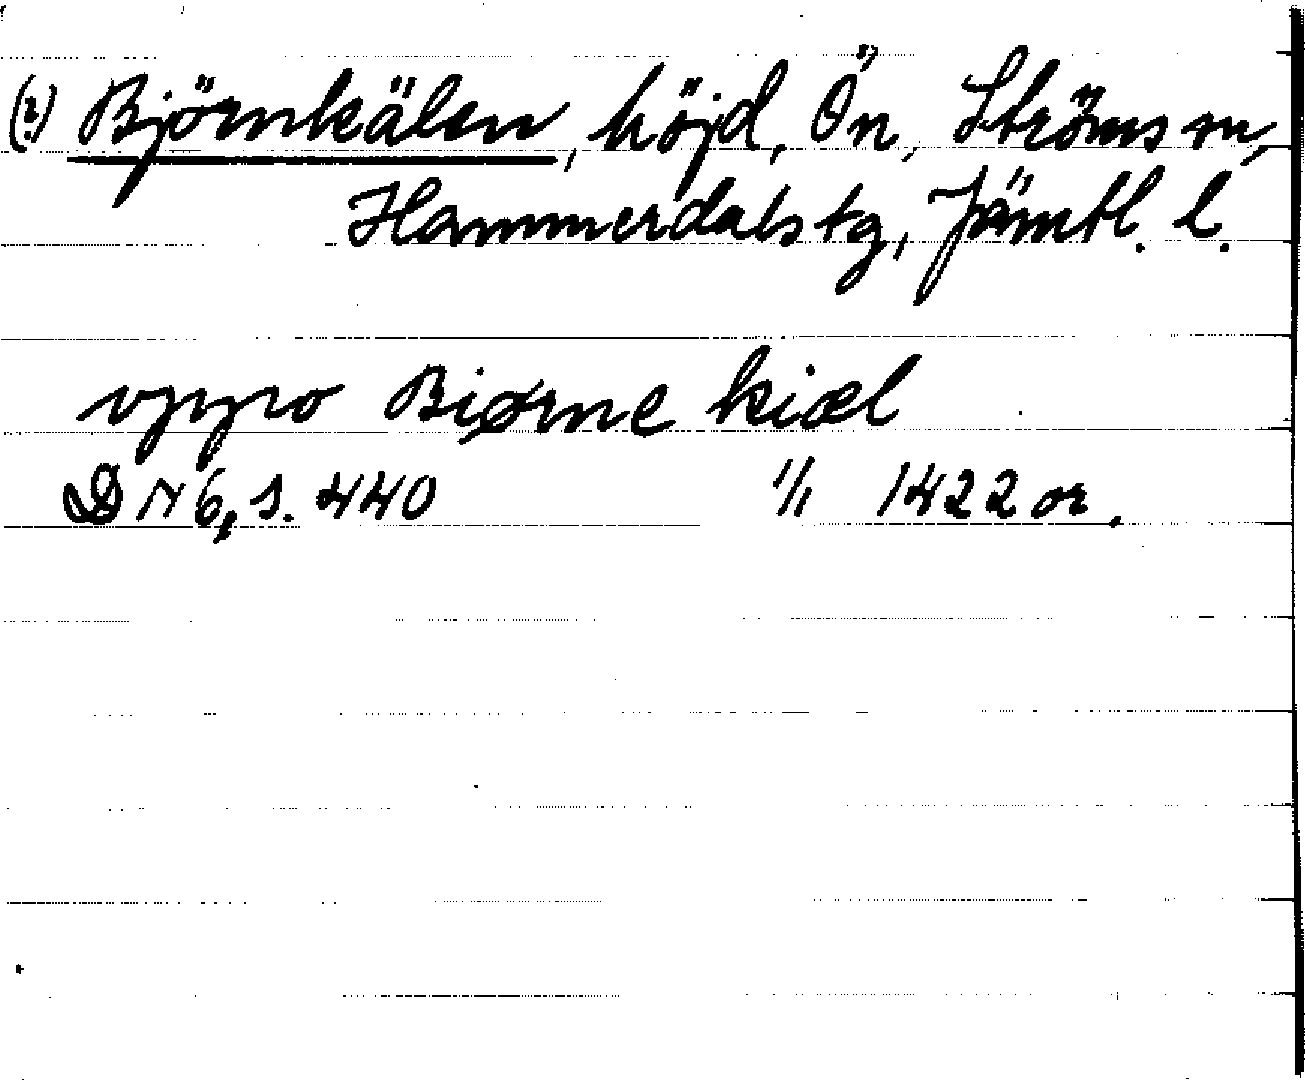 (?) Björnkälen, höjd, Ön, Ströms sn,
Hammerdals tg, Jämtl. l.
vppo Biørne kiæl
DN 6, s. 440 1/1 1422 or.